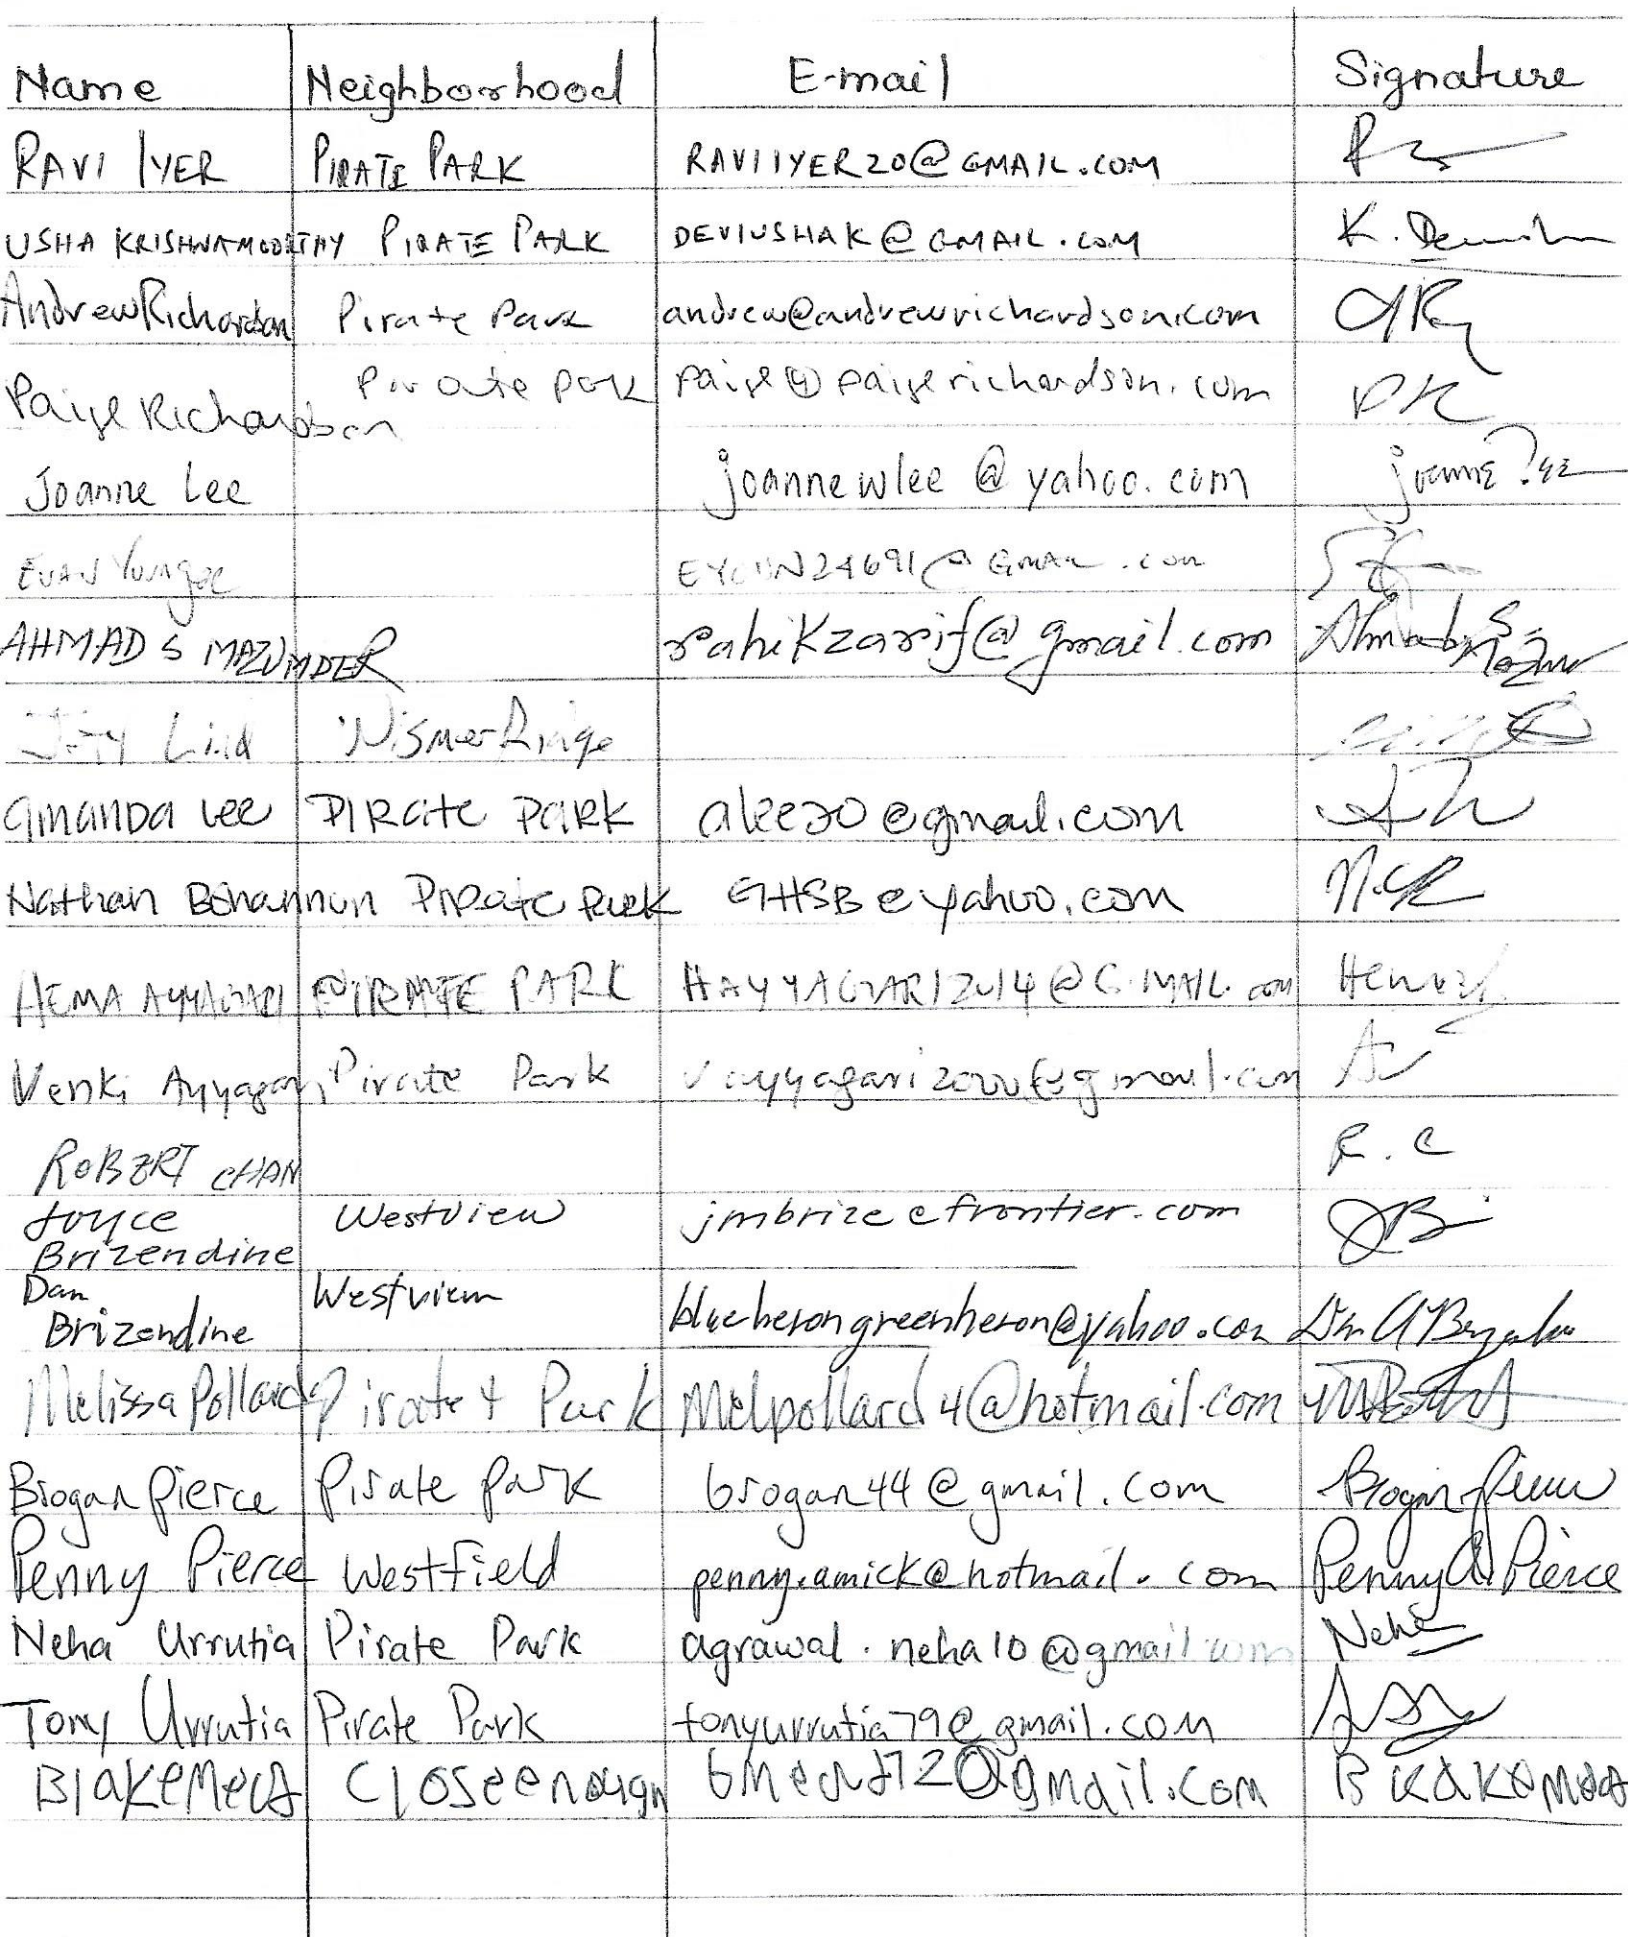 Name Neighborhood E-mail Signature
RAVI IYER PIRATE PARK RAVIIYER20@GMAIL.COM
USHA KRISHNAMOORTHY PIRATE PARK DEVIUSHAK@GMAIL.COM K.
Andrew Richardson Pirate Park andrew@andrewrichardson.com AR
Paige Richardson Pirate park paige@paigerichardson.com PR
Joanne Lee joannewlee@yahoo.com joanne Lee
EVAN
AHMAD S MAZUMDER rahikzarif@gmail.com Ahmad S.
Lind
amanda Lee PIRate PARK alee20@gmail.com
Nathan Bohannon PIRate Park GHSB@yahoo.com
HEMA AYYAGARI PIRATE PARK HAYYAGARI2014@GMAIL.com
Venki Ayyagari Pirate Park
ROBERT CHAN R.C
Joyce Westview jmbrize@frontier.com JB
Brizendine
Dan Westview
Brizendine blueherongreenheron@yahoo.com
Melissa Pollard Pirate 4 Park Melpollard4@hotmail.com
Brogan Pierce Pirate park brogan44@gmail.com Brogan Pierce
Penny Pierce Westfield penny.amick@hotmail.com Penny A Pierce
Neha Urrutia Pirate Park agrawal.neha10@gmail.com Neha
Tony Urrutia Pirate Park tonyurrutia79@gmail.com
Closeenough